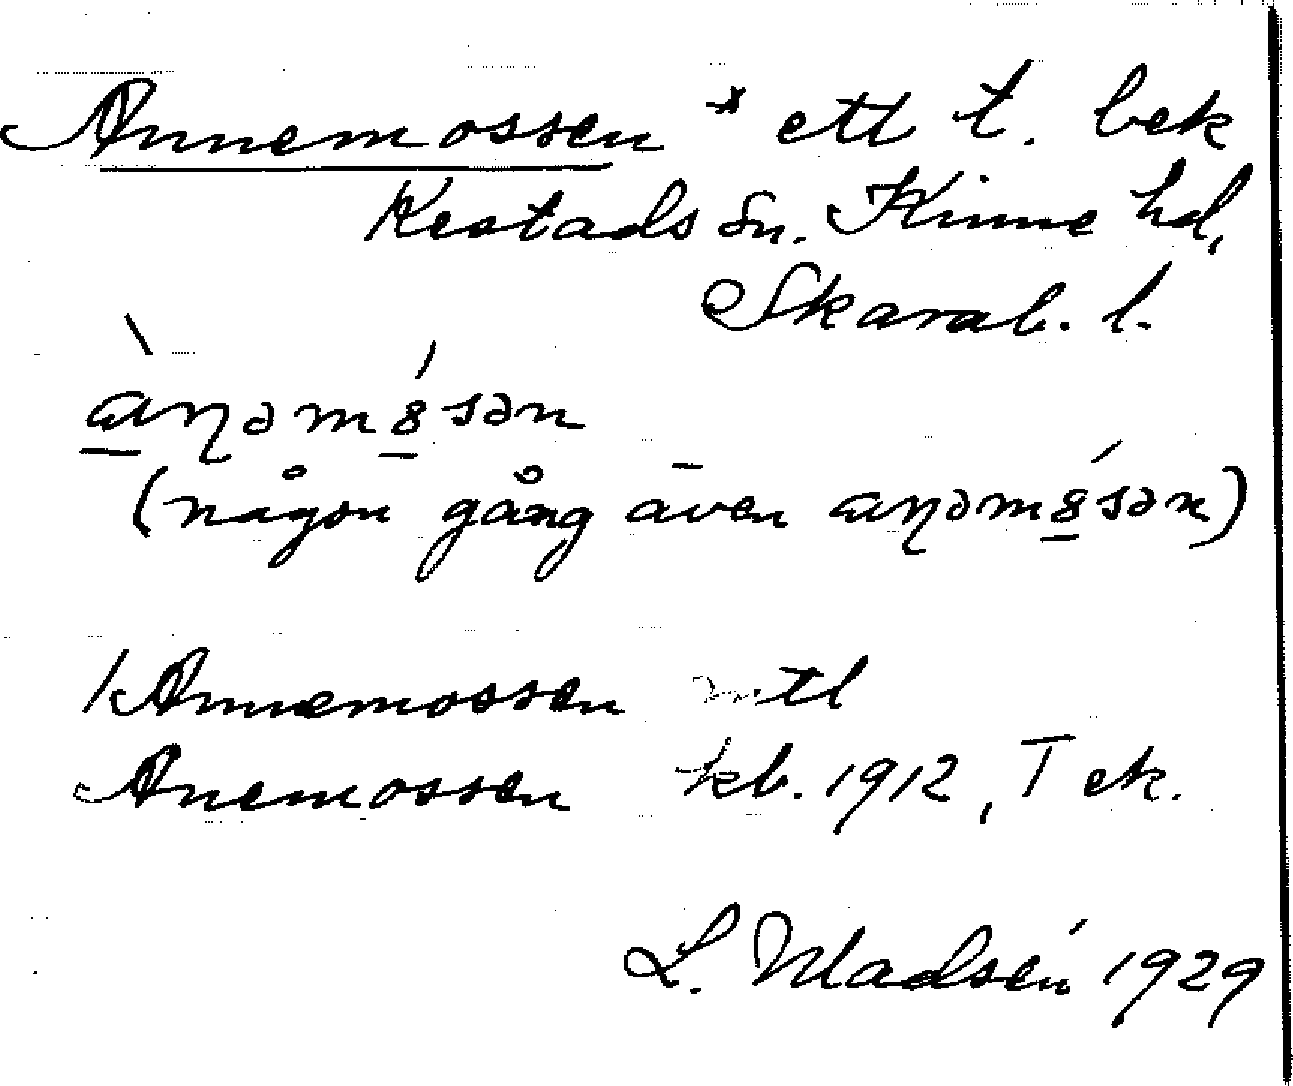 Annemossen * ett t. bek
Kestads sn. Kinne hd,
Skarab. l.
àꞃəmósən
(någon gång även aꞃəmósən)
1 Annemossen mtl
Anemossen kb. 1912, T ek.
L. Madsén 1929